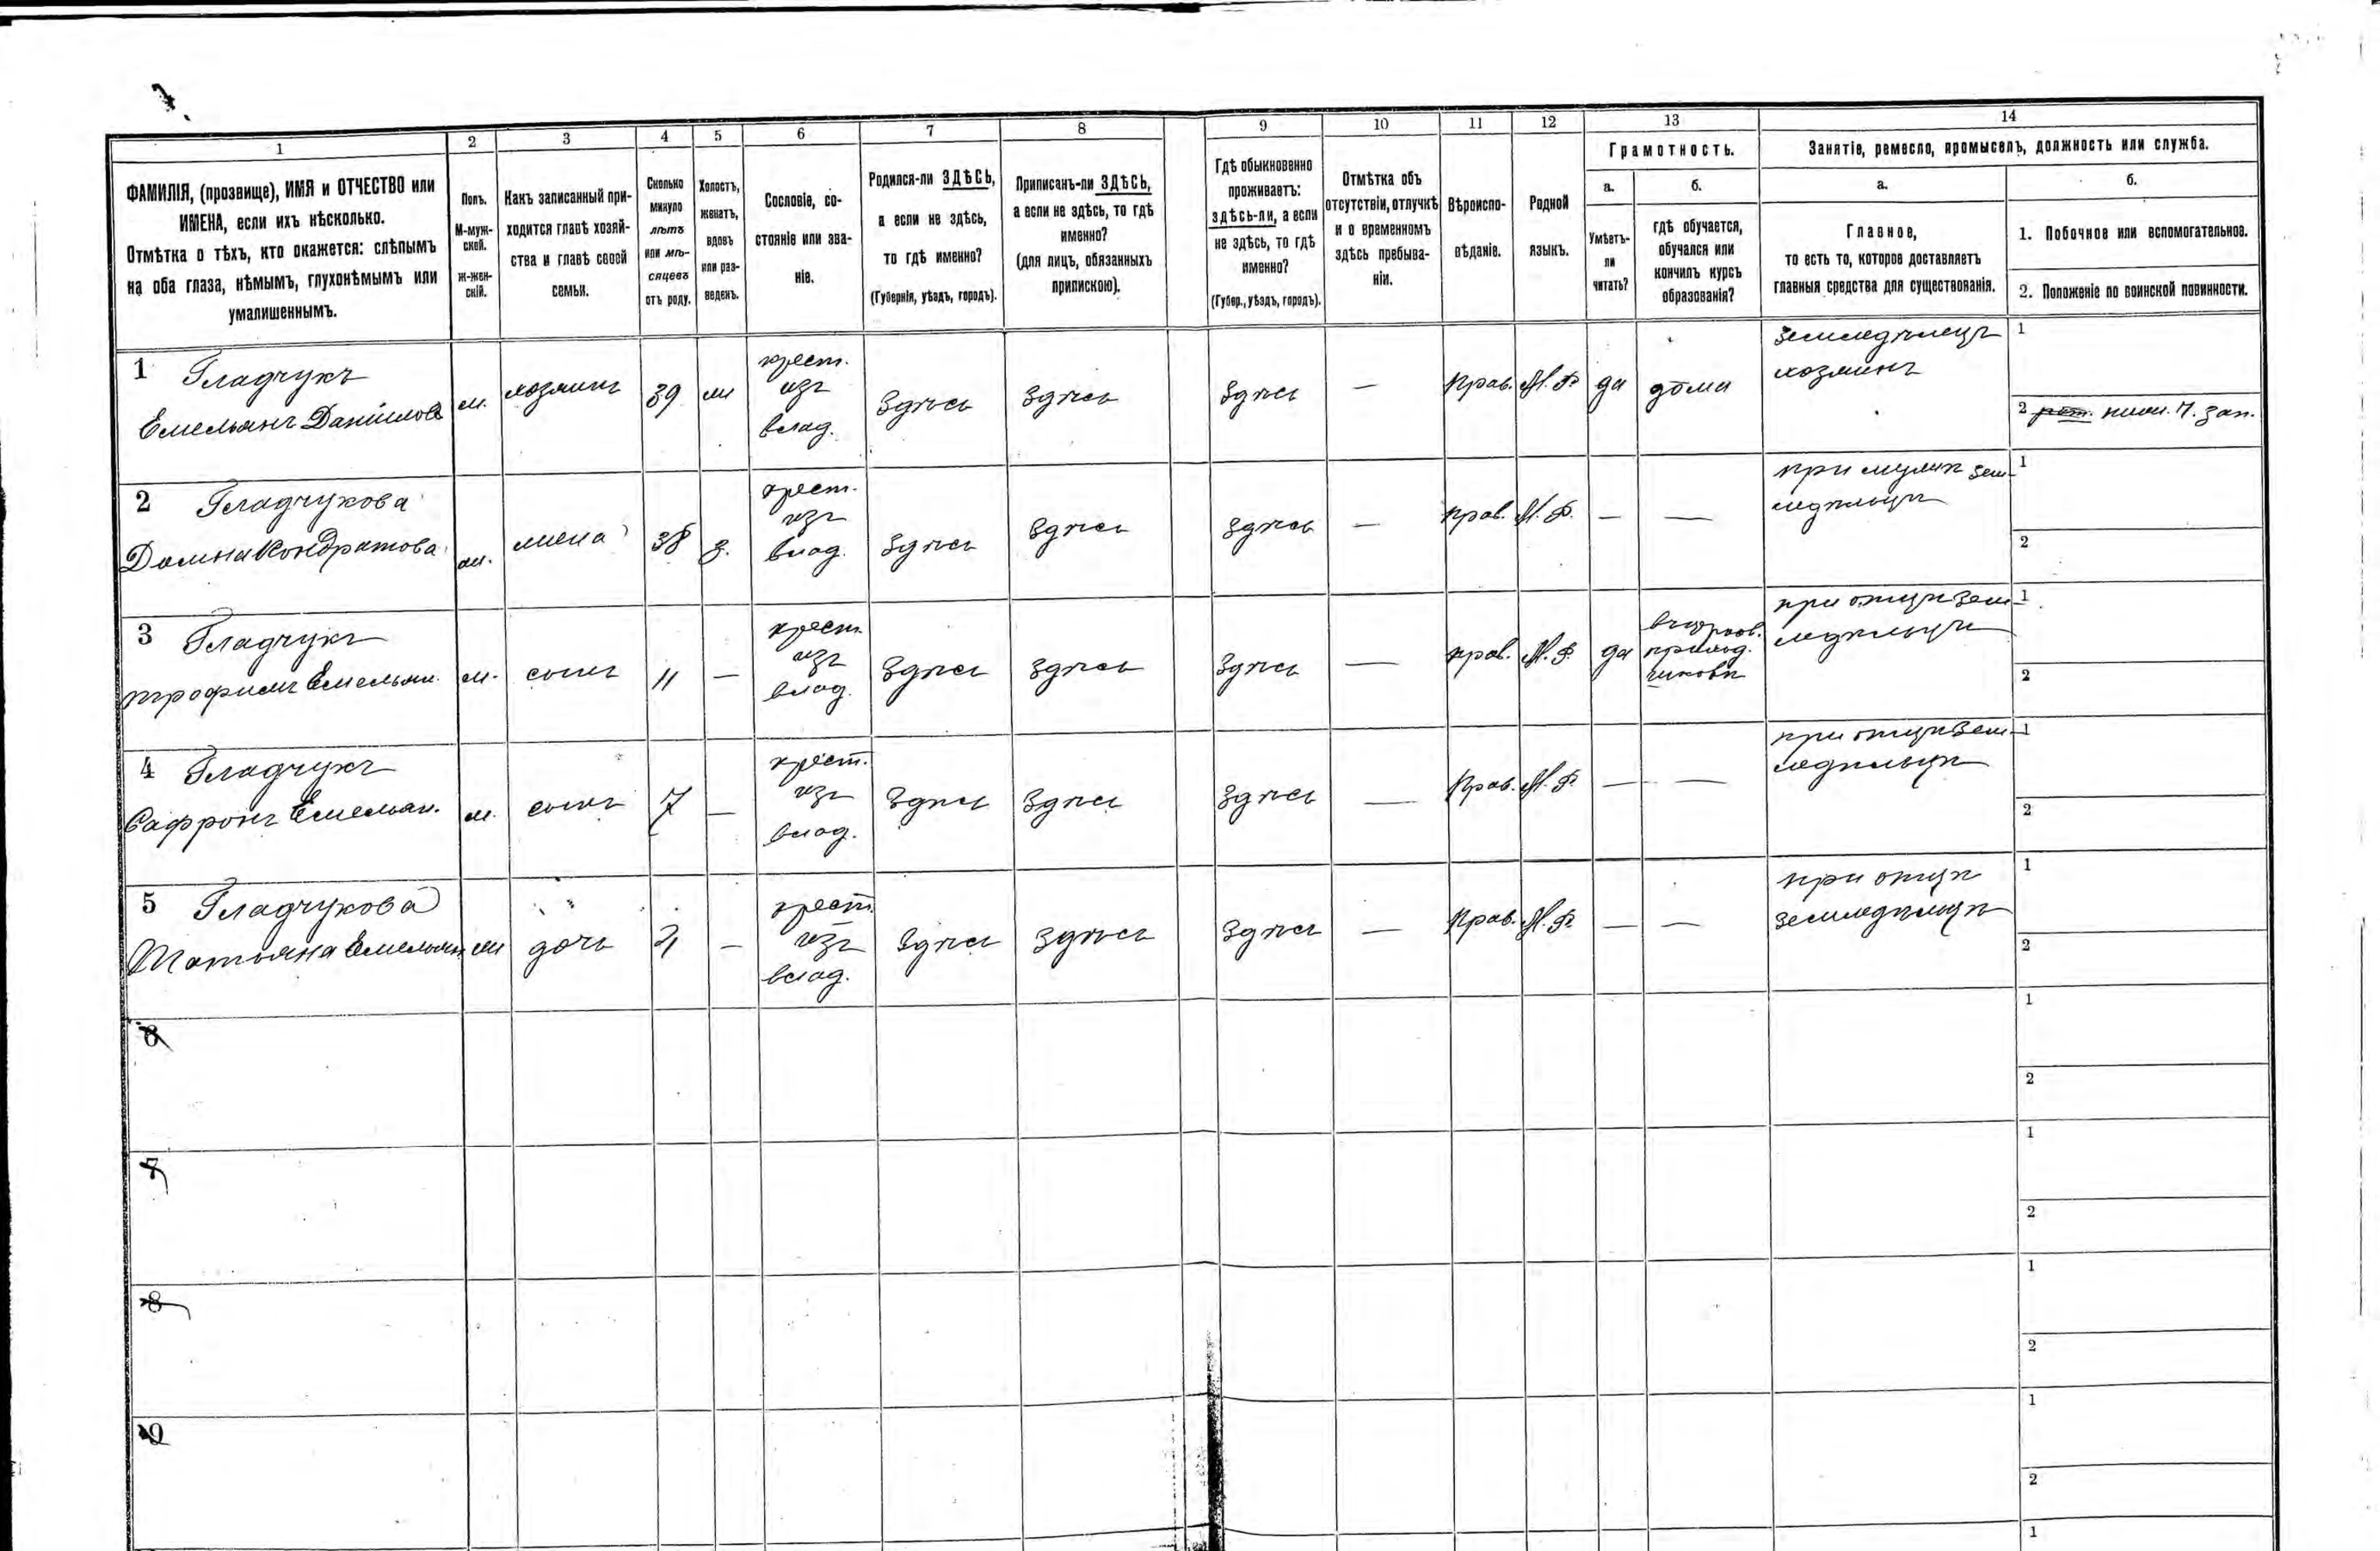 1
2
3
4
5
6
7
8
9
10
11
12
13
14
ФАМИЛІЯ, (прозвище), ИМЯ и ОТЧЕСТВО или
ИМЕНА, если ихъ нѣсколько.
Отмѣтка о тѣхъ, кто окажется: слѣпымъ
на оба глаза, нѣмымъ, глухонѣмымъ или
умалишеннымъ.
Полъ.
М-муж-
ской.
Ж-жен-
скій.
Какъ записанный при-
ходится главѣ хозяй-
ства и главѣ своей
семьи.
Сколько
минуло
лѣтъ
или мѣ-
сяцевъ
отъ роду.
Холостъ,
женатъ,
вдовъ
или раз-
веденъ.
Сословіе, со-
стояніе или зва-
ніе.
Родился-ли ЗДѢСЬ,
а если не здѣсь,
то гдѣ именно?
(Губернія, уѣздъ, городъ).
Приписанъ-ли ЗДѢСЬ,
а если не здѣсь, то гдѣ
именно?
(для лицъ, обязанныхъ
припискою).
Гдѣ обыкновенно
проживаетъ:
здѣсь-ли, а если
не здѣсь, то гдѣ
именно?
(Губер., уѣздъ, городъ).
Отмѣтка объ
отсутствіи, отлучкѣ
и о временномъ
здѣсь пребыва-
ніи.
Вѣроиспо-
вѣданіе.
Родной
языкъ.
Грамотность.
а.
Умѣетъ-
ли
читать?
б.
гдѣ обучается,
обучался или
кончилъ курсъ
образованія?
Занятіе, ремесло, промыселъ, должность или служба.
а.
Главное,
то есть то, которое доставляетъ
главныя средства для существованія.
б.
1. Побочное или вспомогательное.
2. Положеніе по воинской повинности.
1 Гладчукъ
Емельянъ Данилов
м.
хозяинъ
39
ж
крест.
изъ
влад.
Здѣсь
Здѣсь
Здѣсь
—
Прав.
М. Р.
да
дома
земледѣлецъ
хозяинъ
1
2 нист. 7. зап.
2 Гладчукова
Домна Кондратова
ж.
жена
38
з.
крест.
изъ
влад.
Здѣсь
Здѣсь
Здѣсь
—
прав.
М. Р.
—
—
при мужѣ зем-
ледѣльцѣ
1
2
3 Гладчукъ
Трофимъ Емельян.
м.
сынъ
11
—
крест.
изъ
влад.
Здѣсь
Здѣсь
Здѣсь
—
прав.
М. Р.
да
при отцѣ зем-
ледѣльцѣ
1
2
4 Гладчукъ
Сафронъ Емельян.
м.
сынъ
7
—
крест.
изъ
влад.
Здѣсь
Здѣсь
Здѣсь
—
Прав.
М. Р.
—
—
при отцѣ зем-
ледѣльцѣ
1
2
5 Гладчукова
Татьяна Емельян.
ж
дочь
—
крест.
изъ
влад.
Здѣсь
Здѣсь
Здѣсь
—
Прав.
М. Р.
—
—
при отцѣ
земледѣльцѣ
1
2
6
1
2
7
1
2
8
1
2
9
1
2
1